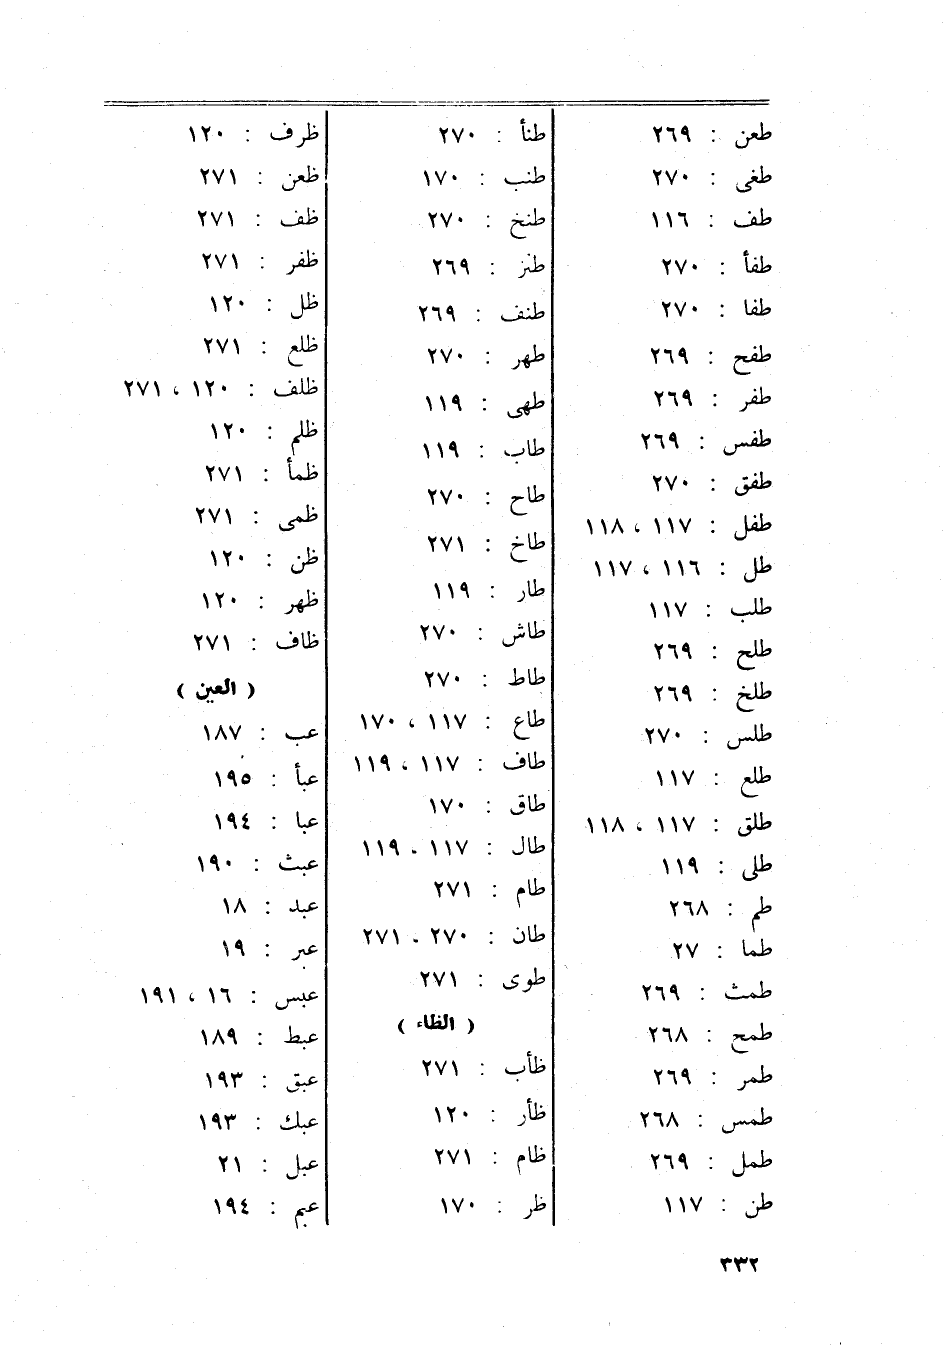 طعن : ٢٦٩
طغى : ٢٧٠
طف : ١١٦
طفأ : ٢٧٠
طفا : ٢٧٠
طفح : ٢٦٩
طفر : ٢٦٩
طفس : ٢٦٩
طفق : ٢٧٠
طفل : ١١٧ ، ١١٨
طل : ١١٦ ، ١١٧
طلب : ١١٧
طلح : ٢٦٩
طلخ : ٢٦٩
طلس : ٢٧٠
طلع : ١١٧
طلق : ١١٧ ، ١١٨
طلى : ١١٩
طم : ٢٦٨
طما : ٢٧
طمث : ٢٦٩
طمح : ٢٦٨
طمر : ٢٦٩
طمس : ٢٦٨
طمل : ٢٦٩
طن : ١١٧
طنأ : ٢٧٠
طنب : ١٧٠
طنخ : ٢٧٠
طنز : ٢٦٩
طنف : ٢٦٩
طهر : ٢٧٠
طهى : ١١٩
طاب : ١١٩
طاح : ٢٧٠
طاخ : ٢٧١
طار : ١١٩
طاش : ٢٧٠
طاط : ٢٧٠
طاع : ١١٧ ، ١٧٠
طاف : ١١٧ ، ١١٩
طاق : ١٧٠
طال : ١١٧ ، ١١٩
طام : ٢٧١
طان : ٢٧٠ ، ٢٧١
طوى : ٢٧١
( الظاء )
ظأب : ٢٧١
ظأر : ١٢٠
ظام : ٢٧١
ظر : ١٧٠
ظرف : ١٢٠
ظعن : ٢٧١
ظف : ٢٧١
ظفر : ٢٧١
ظل : ١٢٠
ظلع : ٢٧١
ظلف : ١٢٠ ، ٢٧١
ظلم : ١٢٠
ظمأ : ٢٧١
ظمى : ٢٧١
ظن : ١٢٠
ظهر : ١٢٠
ظاف : ٢٧١
( العين )
عب : ١٨٧
عبأ : ١٩٥
عبا : ١٩٤
عبث : ١٩٠
عبد : ١٨
عبر : ١٩
عبس : ١٦ ، ١٩١
عبط : ١٨٩
عبق : ١٩٣
عبك : ١٩٣
عبل : ٢١
عبم : ١٩٤
٣٣٢